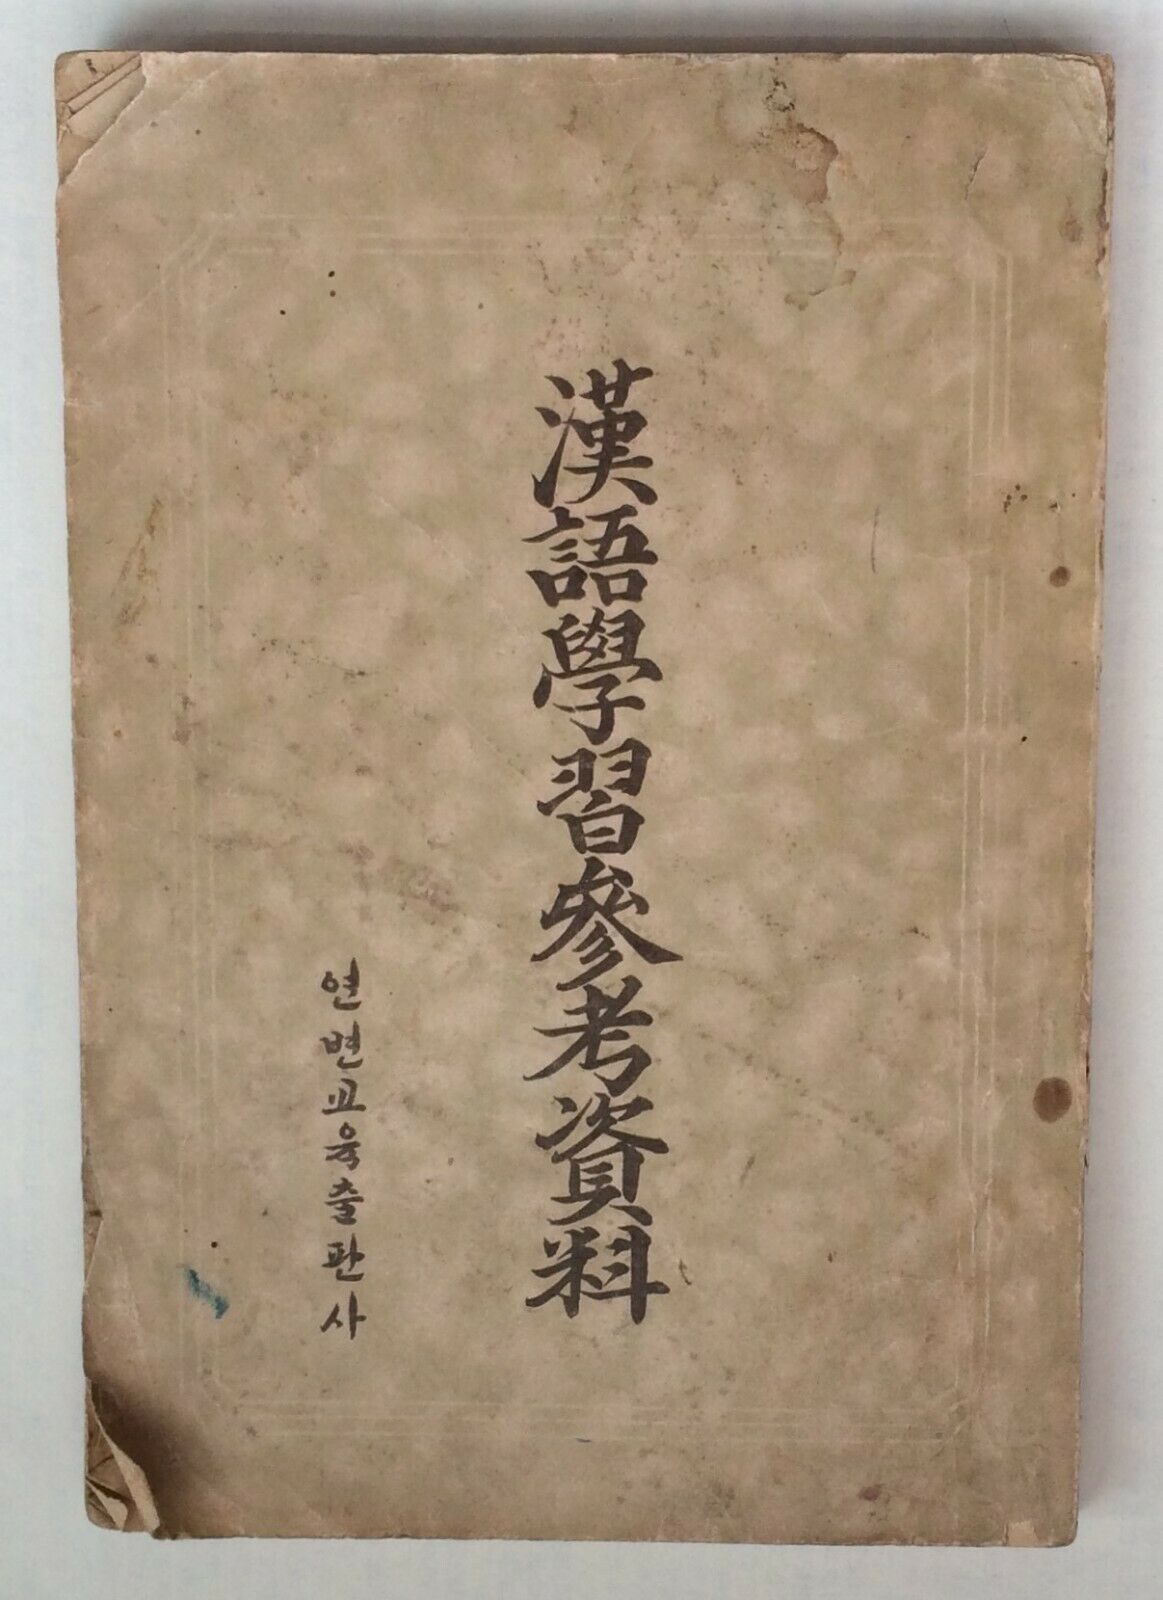 漢語學習參考資料
연변교육출판사